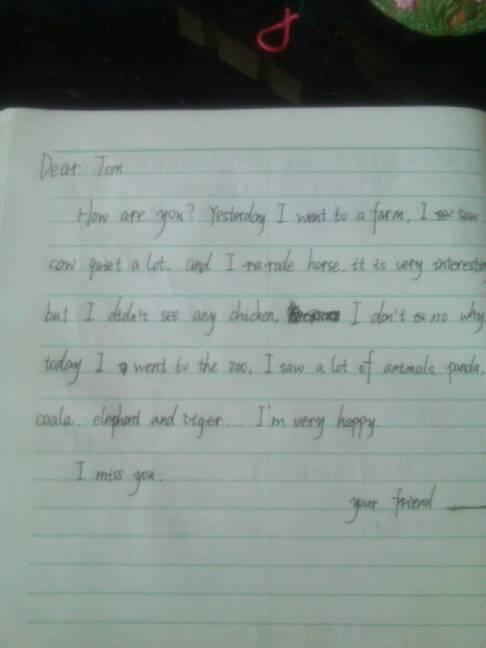 Dear Tom
How are you? Yesterday I went to a farm, I saw
cow quiet a lot. and I rode horse. it is very interestin
but I didn't see any chicken, I don't no why
today I went to the zoo, I saw a lot of animals, panda,
coala, elephant and tiger... I'm very happy.
I miss you.
your friend